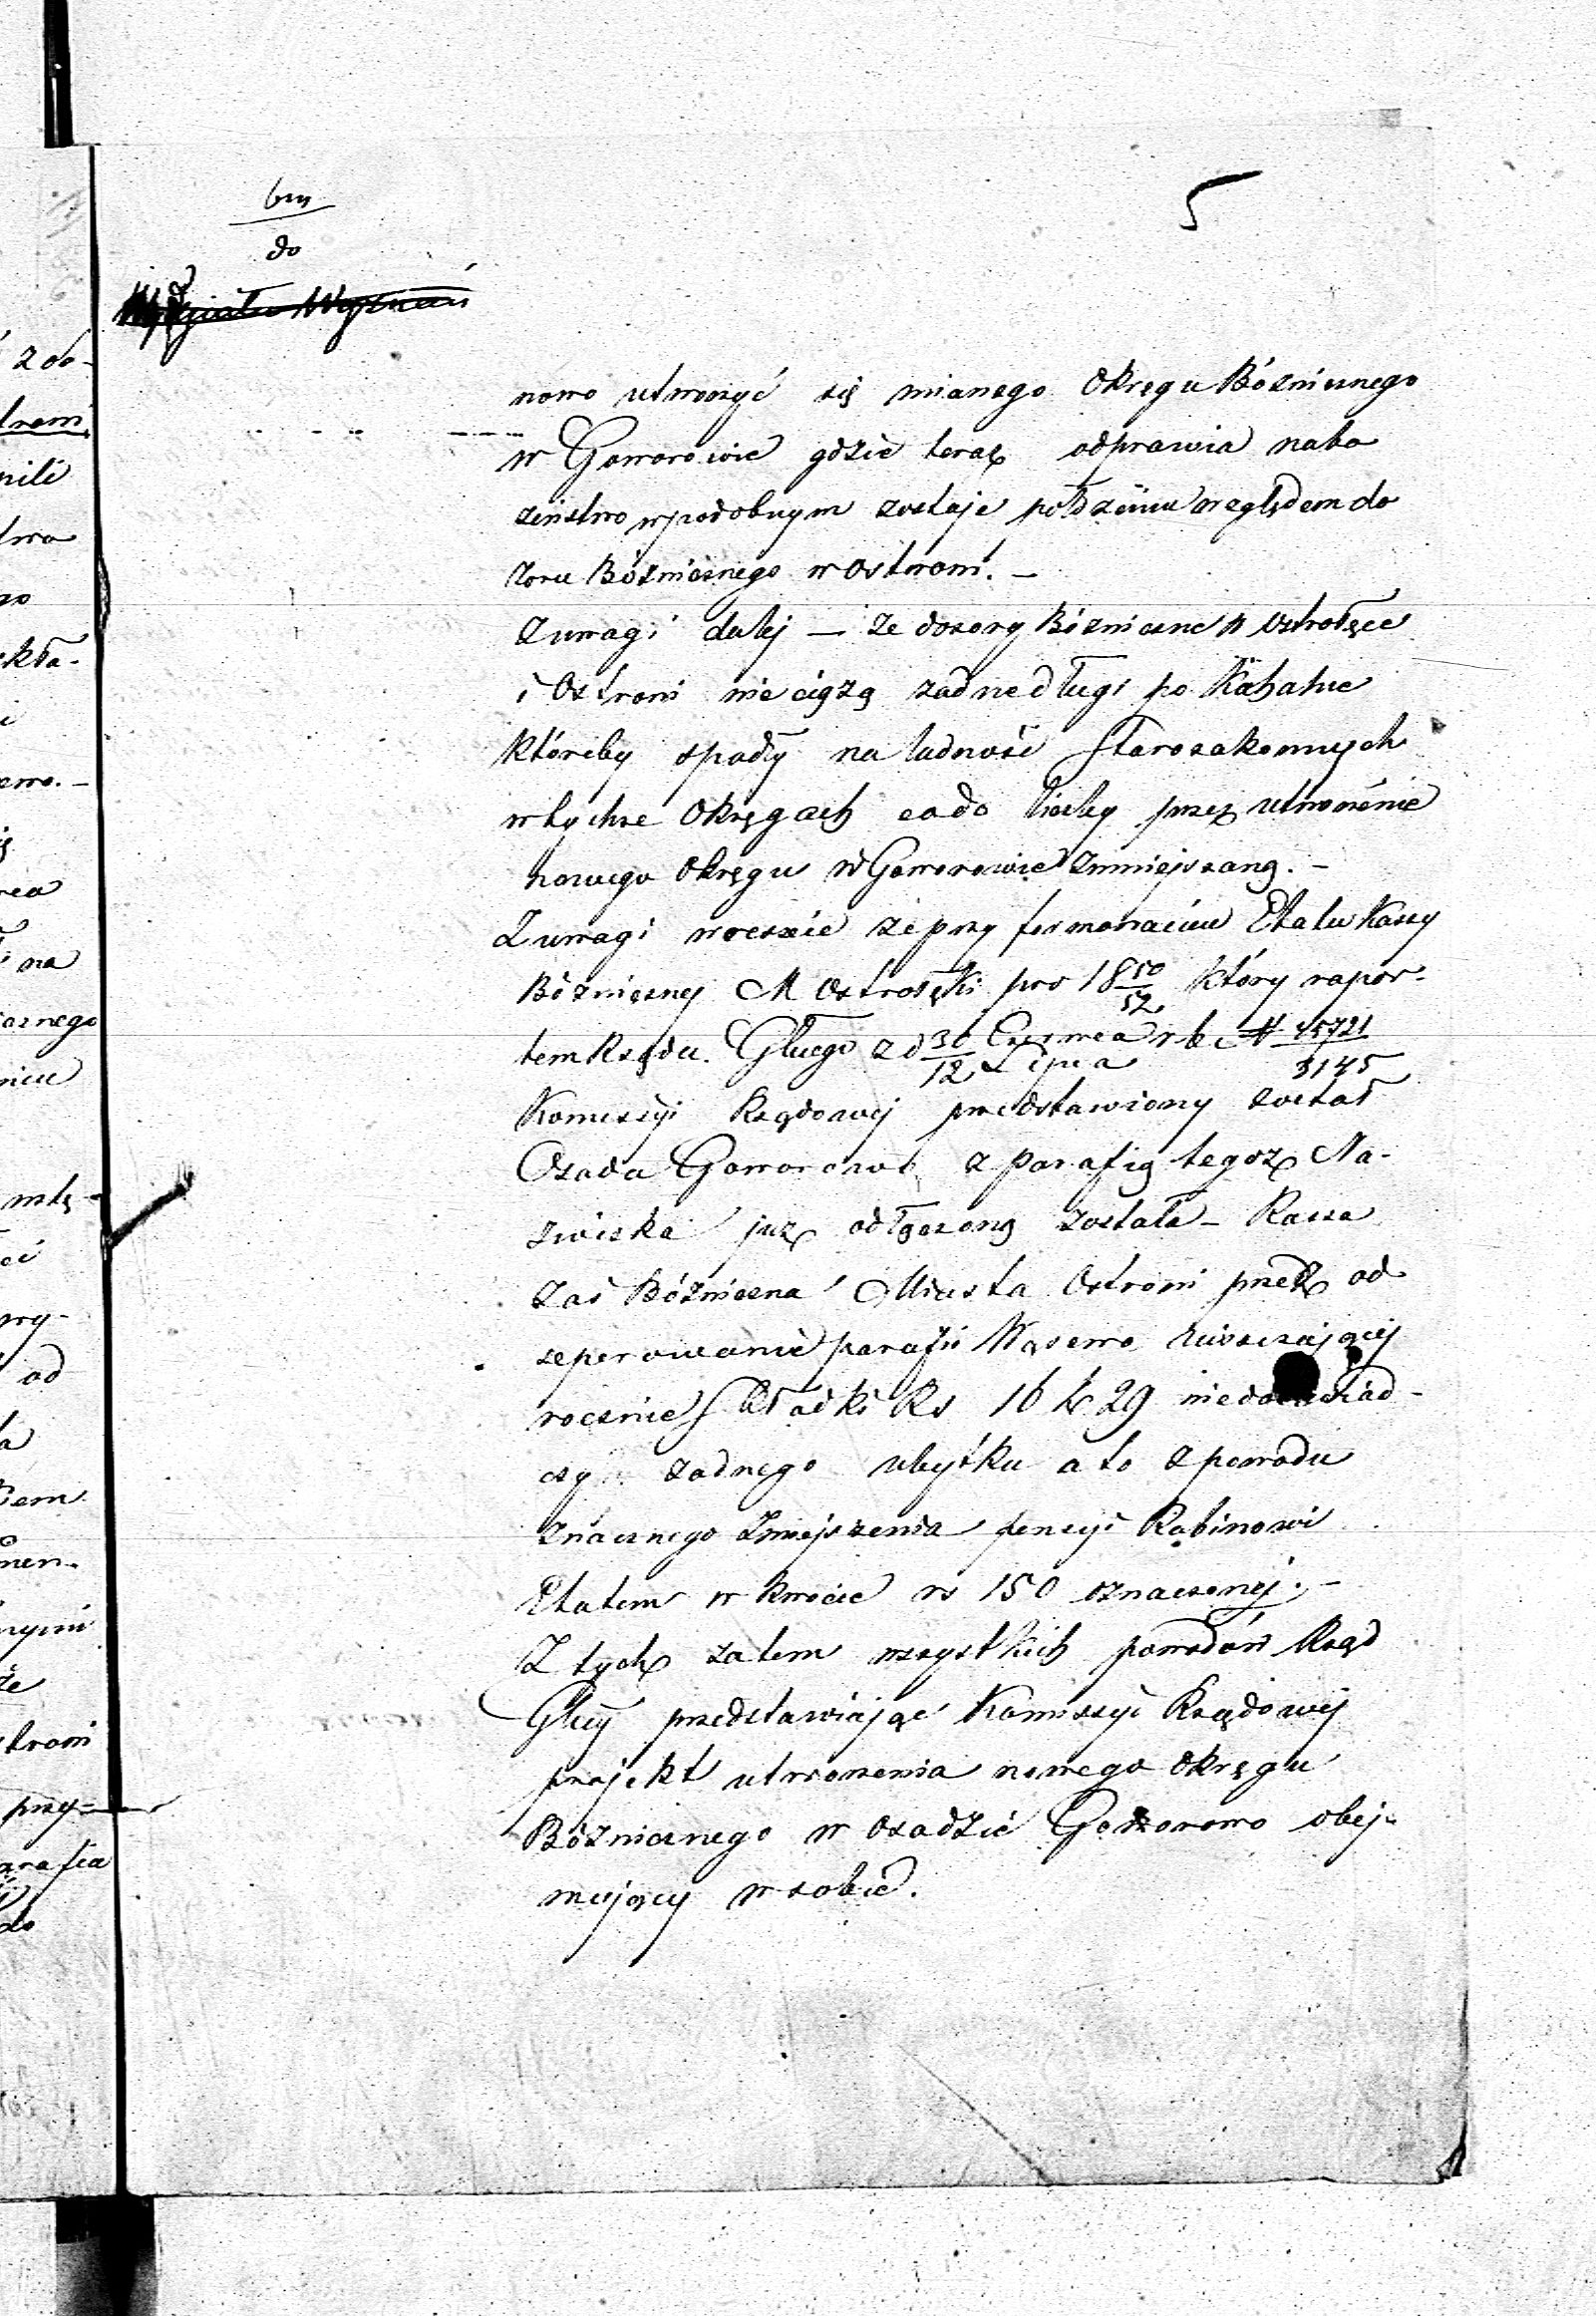 5
do
nowo utworzyć się mianego Okręgu Bóżnicznego
w Goworowie gdzie teraz odprawia nabo
żeństwo w podobnym zostaje położeniu względem do
zoru Bóżnicznego w Ostrowi. —
Z uwagi dalej — że dozory Bóżniczne w Ostrołęce
i Ostrowi nie ciążą żadne długi po Kahalne
któreby spadły na ludność Starozakonnych
w tychże Okręgach co do liczby przez utworzenie
nowego Okręgu w Goworowie zmniejszoną. —
Z uwagi wreszcie że przy formowaniu Etatu Kassy
Bóżnicznej M Ostrołęki pro 18 50/52 który rapor-
tem Rządu Glnego z d 30 Czerwca/12 Lipca r b N 45721/3145
Komissyi Rządowej przedstawiony został
Osada Goworowo z parafią tegoż Na-
zwiska już odłączoną została – Kassa
zaś Bóżniczna Miasta Ostrowi przez od
seperowanie parafii Wąsewo
rocznie Składki Rs 16 k 29 niedoświad-
czy żadnego ubytku a to z powodu
znacznego zmiejszenia pensyi Rabinowi
Etatem w kwocie rs 150 oznaczonej. —
Z tych zatem wszystkich powodów Rząd
Glny przedstawiając Komissyi Rządowej
projekt utworzenia nowego Okręgu
Bóżnicznego w Osadzie Goworowo obej-
mujący w sobie.
z do-
nili
no
i
ść
i na
cznego
niu
ści
od
la
że
przy-
parafia
do